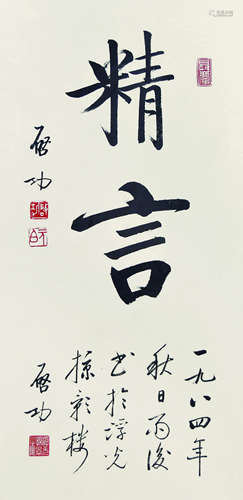 精言
启功
一九八四年
秋日雨後
书於浮光
掠影楼
启功